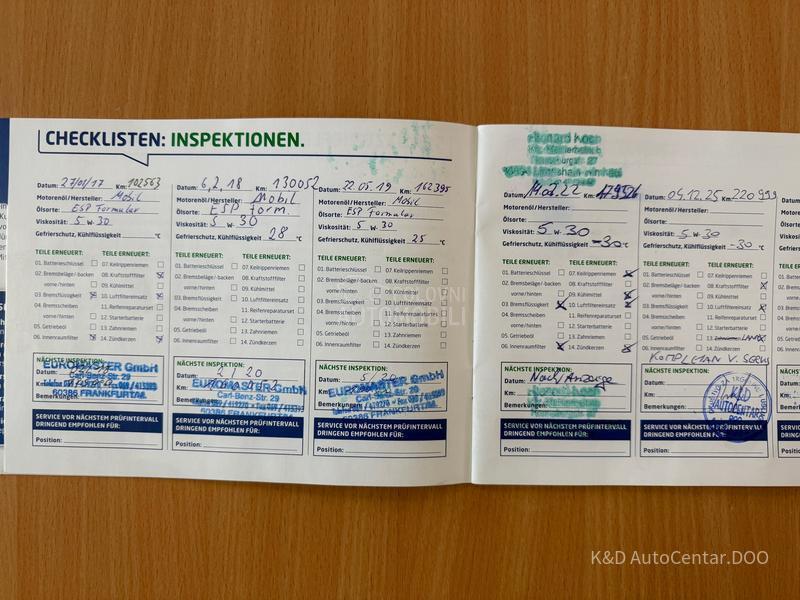 CHECKLISTEN: INSPEKTIONEN.
Datum: 27/01/17 Km: 102563
Motorenöl/Hersteller: Mobil
Ölsorte: ESP Formular
Viskosität: 5 w 30
Gefrierschutz, Kühlflüssigkeit °C
TEILE ERNEUERT: TEILE ERNEUERT:
01. Batterieschlüssel 07. Keilrippenriemen
02. Bremsbeläge/-backen 08. Kraftstofffilter
vorne/hinten 09. Kühlmittel
03. Bremsflüssigkeit 10. Luftfiltereinsatz
04. Bremsscheiben 11. Reifenreparaturset
vorne/hinten 12. Starterbatterie
05. Getriebeöl 13. Zahnriemen
06. Innenraumfilter 14. Zündkerzen
NÄCHSTE INSPEKTION:
Datum:
Km:
Bemerkungen:
EUROMASTER GmbH
Carl-Benz-Str. 29
60386 FRANKFURT/M.
SERVICE VOR NÄCHSTEM PRÜFINTERVALL
DRINGEND EMPFOHLEN FÜR:
Position:
Datum: 6,2,18 Km: 130052
Motorenöl/Hersteller: Mobil
Ölsorte: ESP Form.
Viskosität: 5 w 30
Gefrierschutz, Kühlflüssigkeit 28 °C
TEILE ERNEUERT: TEILE ERNEUERT:
01. Batterieschlüssel 07. Keilrippenriemen
02. Bremsbeläge/-backen 08. Kraftstofffilter
vorne/hinten 09. Kühlmittel
03. Bremsflüssigkeit 10. Luftfiltereinsatz
04. Bremsscheiben 11. Reifenreparaturset
vorne/hinten 12. Starterbatterie
05. Getriebeöl 13. Zahnriemen
06. Innenraumfilter 14. Zündkerzen
NÄCHSTE INSPEKTION:
Datum: 2/20
Km:
Bemerkungen:
EUROMASTER GmbH
Carl-Benz-Str. 29
60386 FRANKFURT/M.
SERVICE VOR NÄCHSTEM PRÜFINTERVALL
DRINGEND EMPFOHLEN FÜR:
Position:
Datum: 22.05.19 Km: 162395
Motorenöl/Hersteller: Mobil
Ölsorte: ESP Formular
Viskosität: 5 w 30
Gefrierschutz, Kühlflüssigkeit 25 °C
TEILE ERNEUERT: TEILE ERNEUERT:
01. Batterieschlüssel 07. Keilrippenriemen
02. Bremsbeläge/-backen 08. Kraftstofffilter
vorne/hinten 09. Kühlmittel
03. Bremsflüssigkeit 10. Luftfiltereinsatz
04. Bremsscheiben 11. Reifenreparaturset
vorne/hinten 12. Starterbatterie
05. Getriebeöl 13. Zahnriemen
06. Innenraumfilter 14. Zündkerzen
NÄCHSTE INSPEKTION:
Datum: 5/20
Km:
Bemerkungen:
EUROMASTER GmbH
Carl-Benz-Str. 29
60386 FRANKFURT/M.
SERVICE VOR NÄCHSTEM PRÜFINTERVALL
DRINGEND EMPFOHLEN FÜR:
Position:
Datum: Km:
Motorenöl/Hersteller:
Ölsorte:
Viskosität: 5 w 30
Gefrierschutz, Kühlflüssigkeit -30 °C
TEILE ERNEUERT: TEILE ERNEUERT:
01. Batterieschlüssel 07. Keilrippenriemen
02. Bremsbeläge/-backen 08. Kraftstofffilter
vorne/hinten 09. Kühlmittel
03. Bremsflüssigkeit 10. Luftfiltereinsatz
04. Bremsscheiben 11. Reifenreparaturset
vorne/hinten 12. Starterbatterie
05. Getriebeöl 13. Zahnriemen
06. Innenraumfilter 14. Zündkerzen
NÄCHSTE INSPEKTION:
Datum: Nach Anzeige
Km:
Bemerkungen:
SERVICE VOR NÄCHSTEM PRÜFINTERVALL
DRINGEND EMPFOHLEN FÜR:
Position:
Datum: 04.12.25 Km: 220 999
Motorenöl/Hersteller:
Ölsorte:
Viskosität: 5 w 30
Gefrierschutz, Kühlflüssigkeit -30 °C
TEILE ERNEUERT: TEILE ERNEUERT:
01. Batterieschlüssel 07. Keilrippenriemen
02. Bremsbeläge/-backen 08. Kraftstofffilter
vorne/hinten 09. Kühlmittel
03. Bremsflüssigkeit 10. Luftfiltereinsatz
04. Bremsscheiben 11. Reifenreparaturset
vorne/hinten 12. Starterbatterie
05. Getriebeöl 13. LANAC
06. Innenraumfilter 14. Zündkerzen
KOMPLETAN V. SERVIS
NÄCHSTE INSPEKTION:
Datum:
Km:
Bemerkungen:
K&D
AUTOCENTAR
SERVICE VOR NÄCHSTEM PRÜFINTERVALL
DRINGEND EMPFOHLEN FÜR:
Position:
K&D AutoCentar.DOO